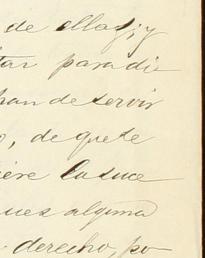 de ellas, y
tar para di
han de servir
o, de que te
iere
ues alguna
derecho, po